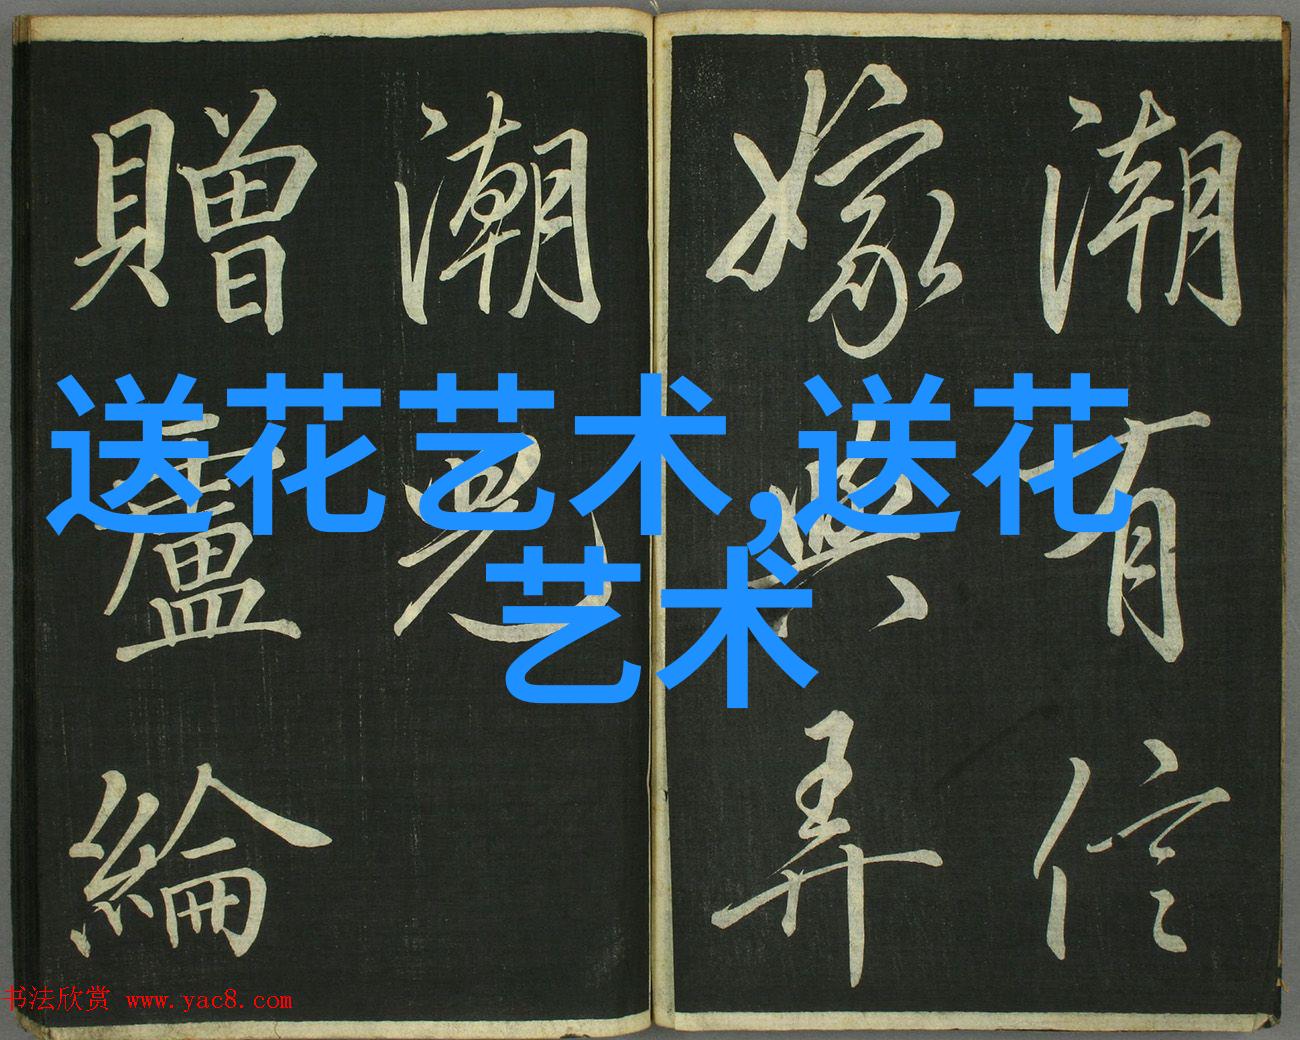 潮有信
嫁與弄
潮兒
贈盧綸
送花艺术,送花
艺术
书法欣赏 www.yac8.com